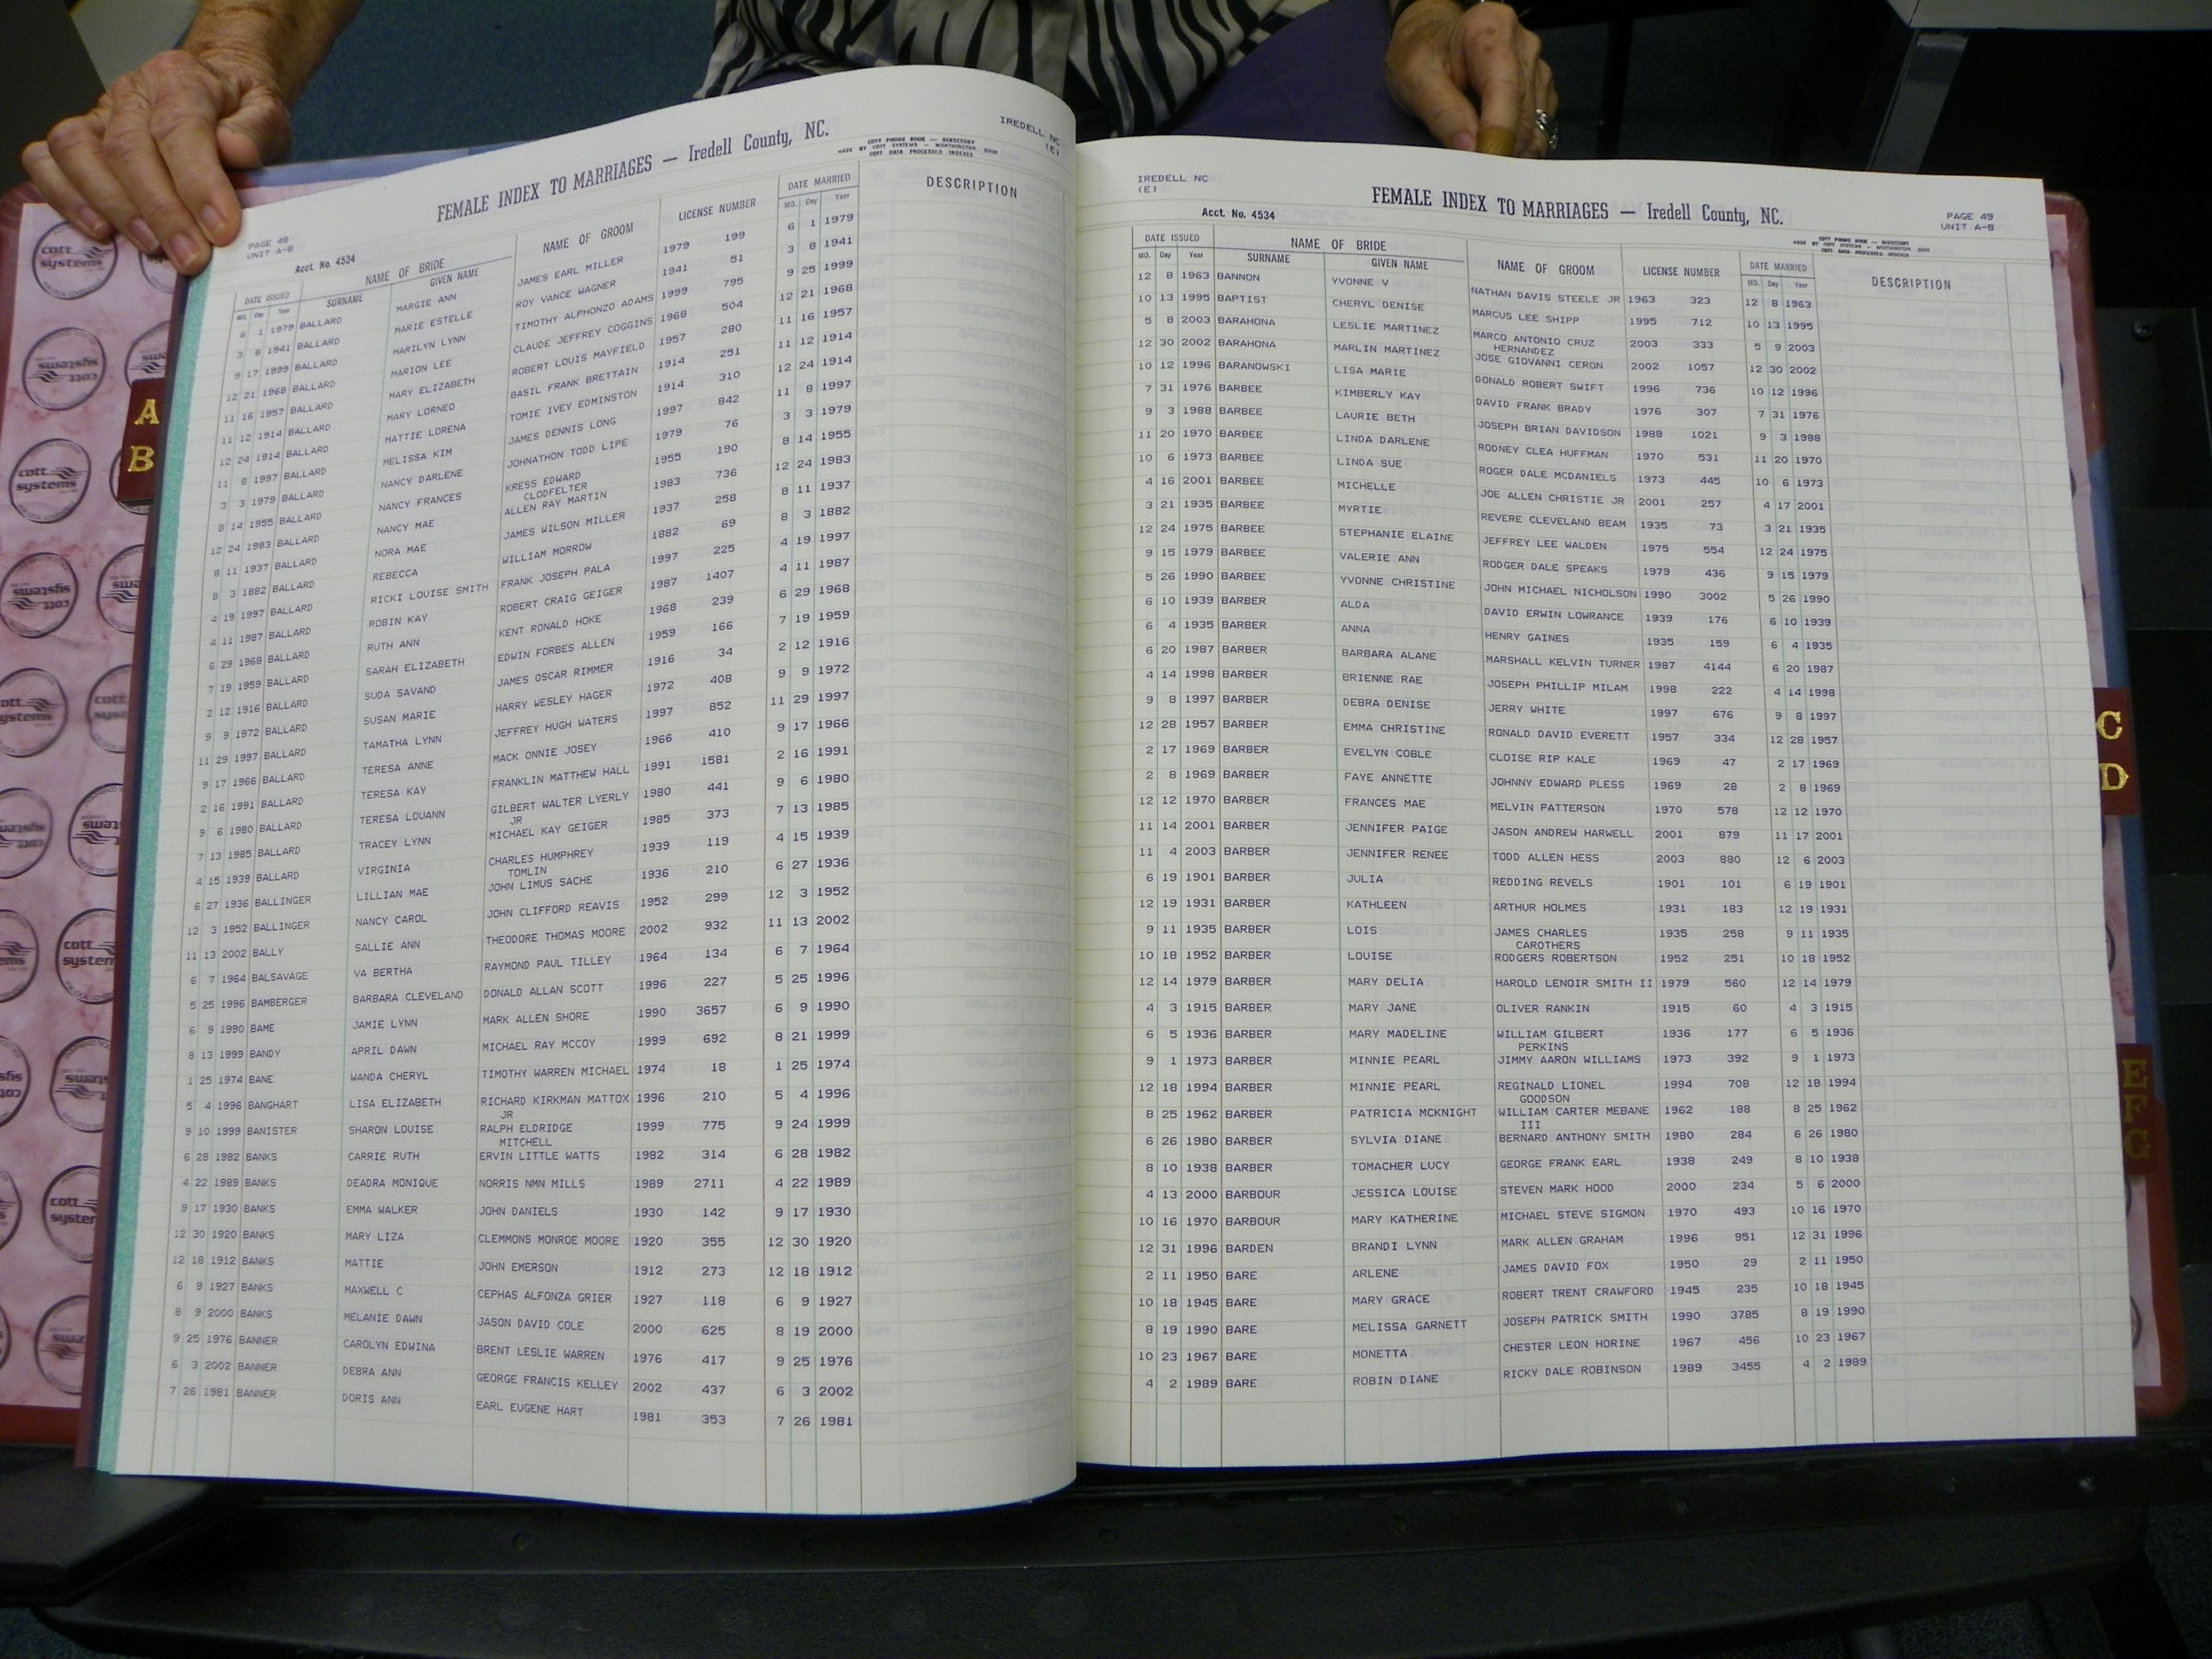 IREDELL NC
(E)
FEMALE INDEX TO MARRIAGES — Iredell County, NC.
COTT PHONE BOOK — DIRECTORY
MADE BY COTT SYSTEMS — WORTHINGTON, OHIO
COTT DATA PROCESSED INDEXES
PAGE 49
UNIT A-B
Acct. No. 4534
DATE ISSUED NAME OF BRIDE NAME OF GROOM LICENSE NUMBER DATE MARRIED DESCRIPTION
MO. Day Year SURNAME GIVEN NAME MO. Day Year
6 1 1979 BALLARD MARGIE ANN JAMES EARL MILLER 1979 199 6 1 1979
3 8 1941 BALLARD MARIE ESTELLE ROY VANCE WAGNER 1941 51 3 8 1941
9 17 1999 BALLARD MARILYN LYNN TIMOTHY ALPHONZO ADAMS 1999 795 9 25 1999
12 21 1968 BALLARD MARION LEE CLAUDE JEFFREY COGGINS 1968 504 12 21 1968
11 16 1957 BALLARD MARY ELIZABETH ROBERT LOUIS MAYFIELD 1957 280 11 16 1957
11 12 1914 BALLARD MARY LORNEO BASIL FRANK BRETTAIN 1914 251 11 12 1914
12 24 1914 BALLARD MATTIE LORENA TOMIE IVEY EDMINSTON 1914 310 12 24 1914
11 8 1997 BALLARD MELISSA KIM JAMES DENNIS LONG 1997 842 11 8 1997
3 3 1979 BALLARD NANCY DARLENE JOHNATHON TODD LIPE 1979 76 3 3 1979
8 14 1955 BALLARD NANCY FRANCES KRESS EDWARD 1955 190 8 14 1955
CLODFELTER
12 24 1983 BALLARD NANCY MAE ALLEN RAY MARTIN 1983 736 12 24 1983
8 11 1937 BALLARD NORA MAE JAMES WILSON MILLER 1937 258 8 11 1937
8 3 1882 BALLARD REBECCA WILLIAM MORROW 1882 69 8 3 1882
4 19 1997 BALLARD RICKI LOUISE SMITH FRANK JOSEPH PALA 1997 225 4 19 1997
4 11 1987 BALLARD ROBIN KAY ROBERT CRAIG GEIGER 1987 1407 4 11 1987
6 29 1968 BALLARD RUTH ANN KENT RONALD HOKE 1968 239 6 29 1968
7 19 1959 BALLARD SARAH ELIZABETH EDWIN FORBES ALLEN 1959 166 7 19 1959
2 12 1916 BALLARD SUDA SAVAND JAMES OSCAR RIMMER 1916 34 2 12 1916
9 9 1972 BALLARD SUSAN MARIE HARRY WESLEY HAGER 1972 408 9 9 1972
11 29 1997 BALLARD TAMATHA LYNN JEFFREY HUGH WATERS 1997 852 11 29 1997
9 17 1966 BALLARD TERESA ANNE MACK ONNIE JOSEY 1966 410 9 17 1966
2 16 1991 BALLARD TERESA KAY FRANKLIN MATTHEW HALL 1991 1581 2 16 1991
9 6 1980 BALLARD TERESA LOUANN GILBERT WALTER LYERLY 1980 441 9 6 1980
JR
7 13 1985 BALLARD TRACEY LYNN MICHAEL KAY GEIGER 1985 373 7 13 1985
4 15 1939 BALLARD VIRGINIA CHARLES HUMPHREY 1939 119 4 15 1939
TOMLIN
6 27 1936 BALLINGER LILLIAN MAE JOHN LIMUS SACHE 1936 210 6 27 1936
12 3 1952 BALLINGER NANCY CAROL JOHN CLIFFORD REAVIS 1952 299 12 3 1952
11 13 2002 BALLY SALLIE ANN THEODORE THOMAS MOORE 2002 932 11 13 2002
6 7 1964 BALSAVAGE VA BERTHA RAYMOND PAUL TILLEY 1964 134 6 7 1964
5 25 1996 BAMBERGER BARBARA CLEVELAND DONALD ALLAN SCOTT 1996 227 5 25 1996
6 9 1990 BAME JAMIE LYNN MARK ALLEN SHORE 1990 3657 6 9 1990
8 13 1999 BANDY APRIL DAWN MICHAEL RAY MCCOY 1999 692 8 21 1999
1 25 1974 BANE WANDA CHERYL TIMOTHY WARREN MICHAEL 1974 18 1 25 1974
5 4 1996 BANGHART LISA ELIZABETH RICHARD KIRKMAN MATTOX 1996 210 5 4 1996
JR
9 10 1999 BANISTER SHARON LOUISE RALPH ELDRIDGE 1999 775 9 24 1999
MITCHELL
6 28 1982 BANKS CARRIE RUTH ERVIN LITTLE WATTS 1982 314 6 28 1982
4 22 1989 BANKS DEADRA MONIQUE NORRIS NMN MILLS 1989 2711 4 22 1989
9 17 1930 BANKS EMMA WALKER JOHN DANIELS 1930 142 9 17 1930
12 30 1920 BANKS MARY LIZA CLEMMONS MONROE MOORE 1920 355 12 30 1920
12 18 1912 BANKS MATTIE JOHN EMERSON 1912 273 12 18 1912
6 9 1927 BANKS MAXWELL C CEPHAS ALFONZA GRIER 1927 118 6 9 1927
8 9 2000 BANKS MELANIE DAWN JASON DAVID COLE 2000 625 8 19 2000
9 25 1976 BANNER CAROLYN EDWINA BRENT LESLIE WARREN 1976 417 9 25 1976
6 3 2002 BANNER DEBRA ANN GEORGE FRANCIS KELLEY 2002 437 6 3 2002
7 26 1981 BANNER DORIS ANN EARL EUGENE HART 1981 353 7 26 1981
IREDELL NC
(E)
FEMALE INDEX TO MARRIAGES — Iredell County, NC.
PAGE 49
UNIT A-B
Acct. No. 4534
COTT PHONE BOOK — DIRECTORY
MADE BY COTT SYSTEMS — WORTHINGTON, OHIO
COTT DATA PROCESSED INDEXES
DATE ISSUED NAME OF BRIDE NAME OF GROOM LICENSE NUMBER DATE MARRIED DESCRIPTION
MO. Day Year SURNAME GIVEN NAME MO. Day Year
12 8 1963 BANNON YVONNE V NATHAN DAVIS STEELE JR 1963 323 12 8 1963
10 13 1995 BAPTIST CHERYL DENISE MARCUS LEE SHIPP 1995 712 10 13 1995
5 8 2003 BARAHONA LESLIE MARTINEZ MARCO ANTONIO CRUZ 2003 333 5 9 2003
HERNANDEZ
12 30 2002 BARAHONA MARLIN MARTINEZ JOSE GIOVANNI CERON 2002 1057 12 30 2002
10 12 1996 BARANOWSKI LISA MARIE DONALD ROBERT SWIFT 1996 736 10 12 1996
7 31 1976 BARBEE KIMBERLY KAY DAVID FRANK BRADY 1976 307 7 31 1976
9 3 1988 BARBEE LAURIE BETH JOSEPH BRIAN DAVIDSON 1988 1021 9 3 1988
11 20 1970 BARBEE LINDA DARLENE RODNEY CLEA HUFFMAN 1970 531 11 20 1970
10 6 1973 BARBEE LINDA SUE ROGER DALE MCDANIELS 1973 445 10 6 1973
4 16 2001 BARBEE MICHELLE JOE ALLEN CHRISTIE JR 2001 257 4 17 2001
3 21 1935 BARBEE MYRTIE REVERE CLEVELAND BEAM 1935 73 3 21 1935
12 24 1975 BARBEE STEPHANIE ELAINE JEFFREY LEE WALDEN 1975 554 12 24 1975
9 15 1979 BARBEE VALERIE ANN RODGER DALE SPEAKS 1979 436 9 15 1979
5 26 1990 BARBEE YVONNE CHRISTINE JOHN MICHAEL NICHOLSON 1990 3002 5 26 1990
6 10 1939 BARBER ALDA DAVID ERWIN LOWRANCE 1939 176 6 10 1939
6 4 1935 BARBER ANNA HENRY GAINES 1935 159 6 4 1935
6 20 1987 BARBER BARBARA ALANE MARSHALL KELVIN TURNER 1987 4144 6 20 1987
4 14 1998 BARBER BRIENNE RAE JOSEPH PHILLIP MILAM 1998 222 4 14 1998
9 8 1997 BARBER DEBRA DENISE JERRY WHITE 1997 676 9 8 1997
12 28 1957 BARBER EMMA CHRISTINE RONALD DAVID EVERETT 1957 334 12 28 1957
2 17 1969 BARBER EVELYN COBLE CLOISE RIP KALE 1969 47 2 17 1969
2 8 1969 BARBER FAYE ANNETTE JOHNNY EDWARD PLESS 1969 28 2 8 1969
12 12 1970 BARBER FRANCES MAE MELVIN PATTERSON 1970 578 12 12 1970
11 14 2001 BARBER JENNIFER PAIGE JASON ANDREW HARWELL 2001 879 11 17 2001
11 4 2003 BARBER JENNIFER RENEE TODD ALLEN HESS 2003 880 12 6 2003
6 19 1901 BARBER JULIA REDDING REVELS 1901 101 6 19 1901
12 19 1931 BARBER KATHLEEN ARTHUR HOLMES 1931 183 12 19 1931
9 11 1935 BARBER LOIS JAMES CHARLES 1935 258 9 11 1935
CAROTHERS
10 18 1952 BARBER LOUISE RODGERS ROBERTSON 1952 251 10 18 1952
12 14 1979 BARBER MARY DELIA HAROLD LENOIR SMITH II 1979 560 12 14 1979
4 3 1915 BARBER MARY JANE OLIVER RANKIN 1915 60 4 3 1915
6 5 1936 BARBER MARY MADELINE WILLIAM GILBERT 1936 177 6 5 1936
PERKINS
9 1 1973 BARBER MINNIE PEARL JIMMY AARON WILLIAMS 1973 392 9 1 1973
12 18 1994 BARBER MINNIE PEARL REGINALD LIONEL 1994 708 12 18 1994
GOODSON
8 25 1962 BARBER PATRICIA MCKNIGHT WILLIAM CARTER MEBANE 1962 188 8 25 1962
III
6 26 1980 BARBER SYLVIA DIANE BERNARD ANTHONY SMITH 1980 284 6 26 1980
8 10 1938 BARBER TOMACHER LUCY GEORGE FRANK EARL 1938 249 8 10 1938
4 13 2000 BARBOUR JESSICA LOUISE STEVEN MARK HOOD 2000 234 5 6 2000
10 16 1970 BARBOUR MARY KATHERINE MICHAEL STEVE SIGMON 1970 493 10 16 1970
12 31 1996 BARDEN BRANDI LYNN MARK ALLEN GRAHAM 1996 951 12 31 1996
2 11 1950 BARE ARLENE JAMES DAVID FOX 1950 29 2 11 1950
10 18 1945 BARE MARY GRACE ROBERT TRENT CRAWFORD 1945 235 10 18 1945
8 19 1990 BARE MELISSA GARNETT JOSEPH PATRICK SMITH 1990 3785 8 19 1990
10 23 1967 BARE MONETTA CHESTER LEON HORINE 1967 456 10 23 1967
4 2 1989 BARE ROBIN DIANE RICKY DALE ROBINSON 1989 3455 4 2 1989
A
B
C
D
E
F
G
cott
systems